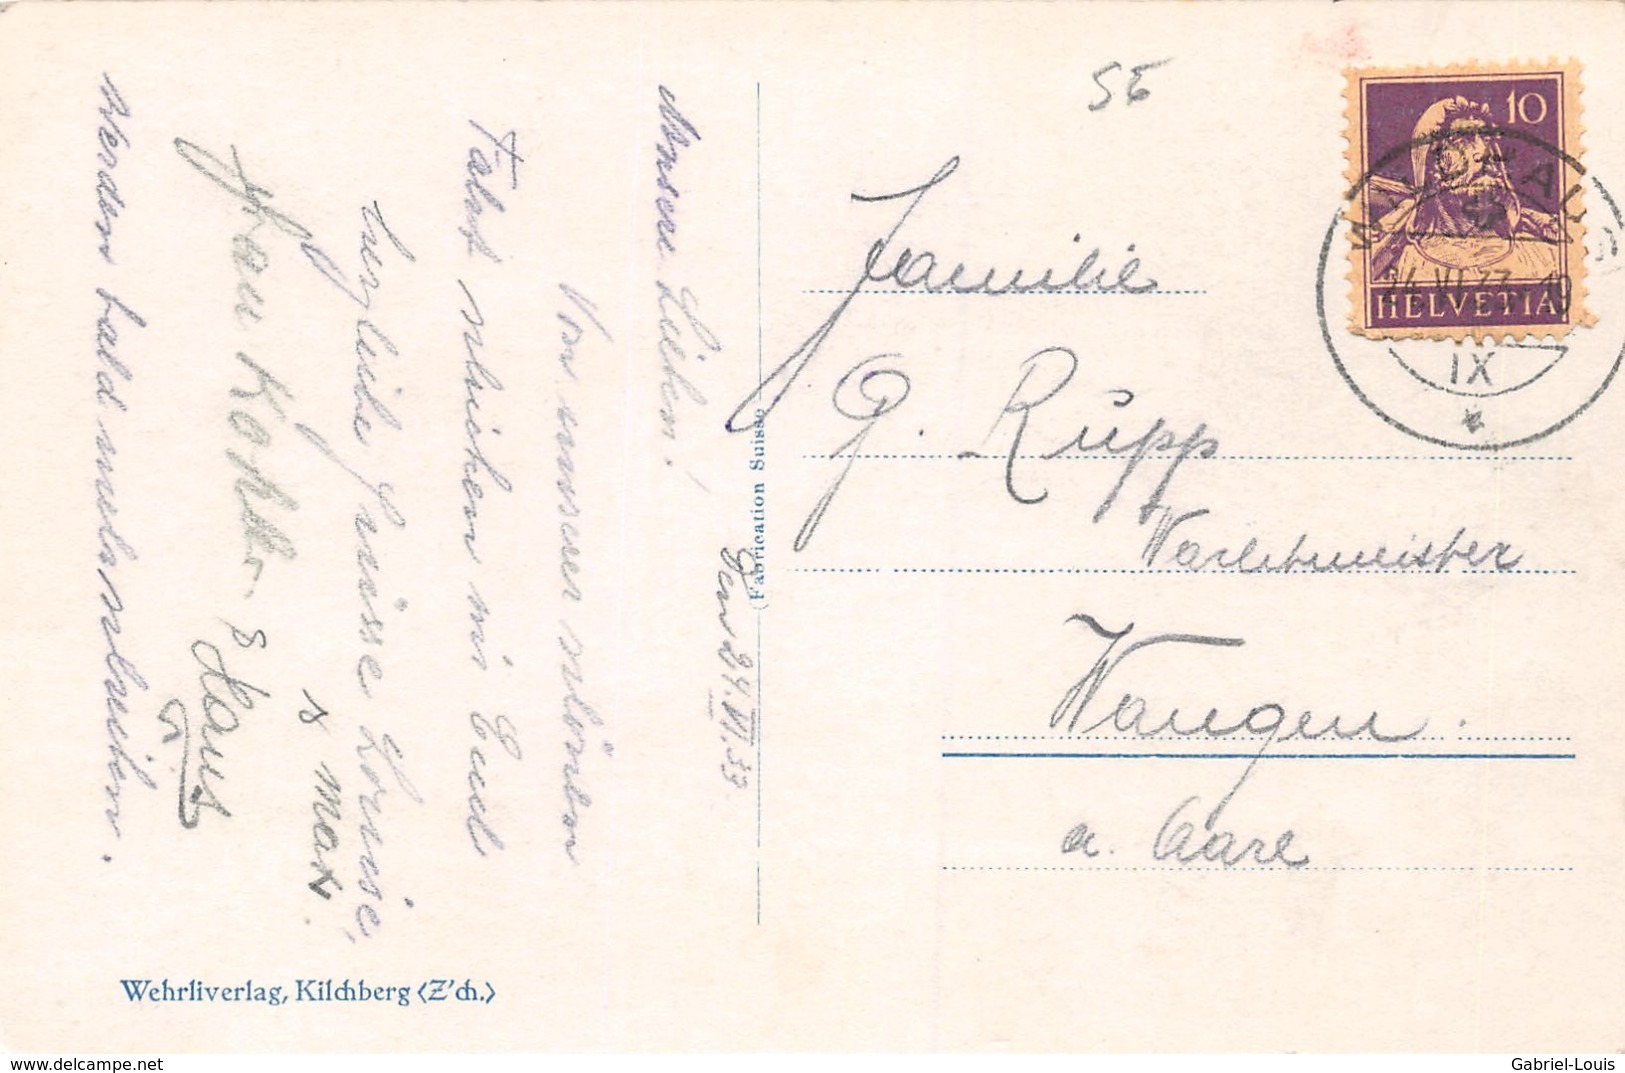 Den 24. VI. 33
Unsere Lieben!
Von unserer schönen
Fahrt schicken wir Euch
herzliche Grüsse Louise,
& Max.
Frau Kohler & Hans
werden bald mehr schreiben.
Wehrliverlag, Kilchberg (Z'ch.)
(Fabrication Suisse)
SE
Familie
G. Rupp
Wachtmeister
Wangen.
a. Aare
10
HELVETIA
WILDHAUS
24.VI.33. 19
IX
delcampe.net
Gabriel-Louis